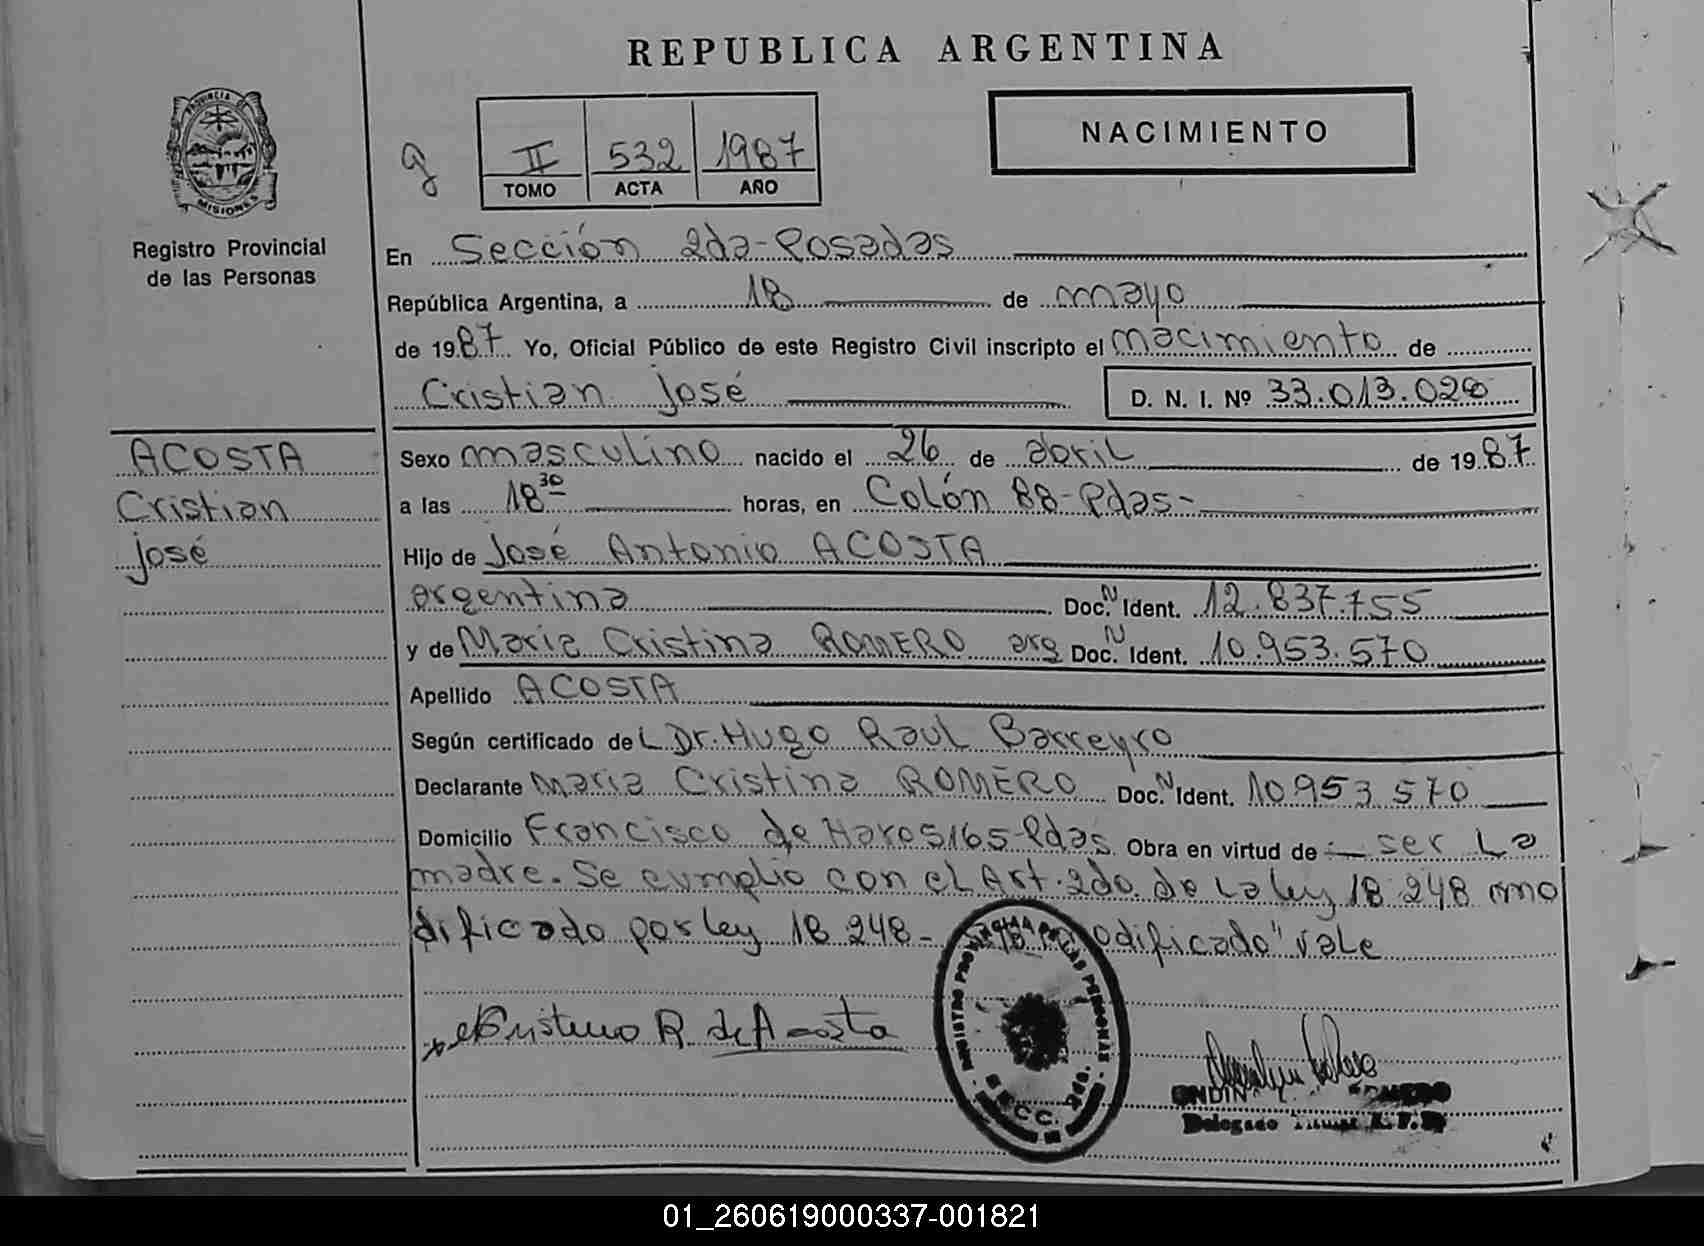 REPUBLICA ARGENTINA
PROVINCIA DE MISIONES
Registro Provincial
de las Personas
g
II 532 1987
TOMO ACTA AÑO
NACIMIENTO
En Sección 2da-Posadas
República Argentina, a 18 de mayo
de 1987 Yo, Oficial Público de este Registro Civil inscripto el nacimiento de
Cristian José D. N. I. Nº 33.013.020
ACOSTA
Cristian
José
Sexo masculino nacido el 26 de abril de 1987
a las 18 30 horas, en Colón 88-Pdas-
Hijo de José Antonio ACOSTA
argentina Doc. N Ident. 12.837.755
y de María Cristina ROMERO arg Doc. N Ident. 10.953.570
Apellido ACOSTA
Según certificado del Dr. Hugo Raul Barreyro
Declarante María Cristina ROMERO Doc. N Ident. 10953570
Domicilio Francisco de Haro 5165-Pdas. Obra en virtud de ser la
madre. Se cumplio con el Art. 2do. de la ley 18 248 mo
dificado por ley 18 248- odificado" vale
Cristina R. de Acosta
REGISTRO PROVINCIAL DE LAS PERSONAS
SECC. 2da.
ROMERO
Delegado Titular R.P.P.
01_260619000337-001821